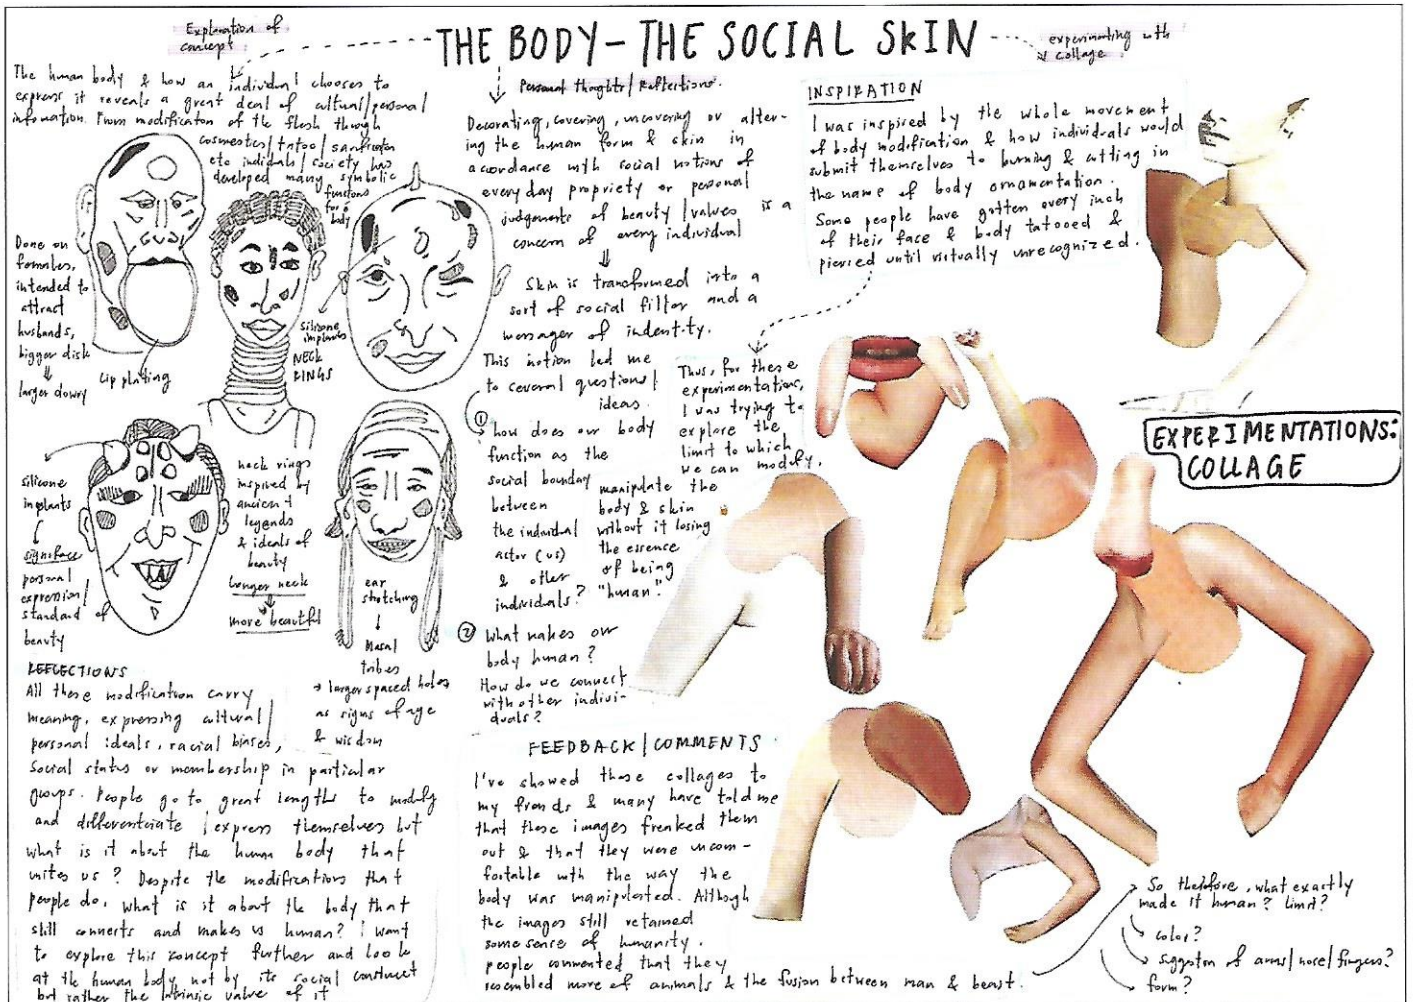 Explanation of
concept
THE BODY - THE SOCIAL SKIN
experimenting with
collage.
The human body & how an individual chooses to
express it reveals a great deal of cultural/personal
infomation. From modificaton of the flesh though
cosmestics/tatoo/sacrification
etc individals/society has
developed many symbolic
functions
for a
body
Done on
females,
intended to
attract
husbands,
bigger disk
larger dowry
Lip plating
NECK
RINGS
silicone
implants
silicone
implants
significance
personal
expression/
standard of
beauty
neck rings
inspired by
ancient
legends
& ideals of
beauty
Longer neck
more beautiful
ear
stretching
Masai
tribes
→ larger spaced holes
as signs of age
& wisdom
REFLECTIONS
All these modification carry
meaning, expressing cultural/
personal ideals, racial biases,
Social status or membership in particular
groups. People go to great lengths to modify
and differenterate/express themselves but
what is it about the human body that
unites us? Despite the modifications that
people do, what is it about the body that
still connects and makes us human? I want
to explore this concept further and look
at the human body not by its social construct
but rather the intrinsic value of it
Personal thoughts/Reflections.
Decorating, covering, uncovering or alter-
ing the human form & skin in
acordance with social notions of
everyday propriety or personal
judgements of beauty/values is a
concern of every individual
Skin is transformed into a
sort of social filter and a
messager of indentity.
This notion led me
to several questions/
ideas.
① how does our body
function as the
social bounday
between
the individal
actor (us)
& other
individuals?
② What makes our
body human?
How do we connect
with other indivi-
duals?
INSPIRATION
I was inspired by the whole movement
of body modification & how individals would
submit themselves to burning & cutting in
the name of body ornamentation.
Some people have gotten every inch
of their face & body tatooed &
pierced until virtually unrecognized.
Thus, for these
experimentations,
I was trying to
explore the
limit to which
we can modify,
manipulate the
body & skin
without it losing
the essence
of being
"human".
EXPERIMENTATIONS:
COLLAGE
FEEDBACK/COMMENTS
I've showed these collages to
my friends & many have told me
that these images freaked them
out & that they were uncom-
fortable with the way the
body was manipulated. Although
the images still retained
some sense of humanity.
people commented that they
resembled more of animals & the fusion between man & beast.
So therefore, what exactly
made it human? Limit?
color?
suggeston of arms/nose/fingers?
form?